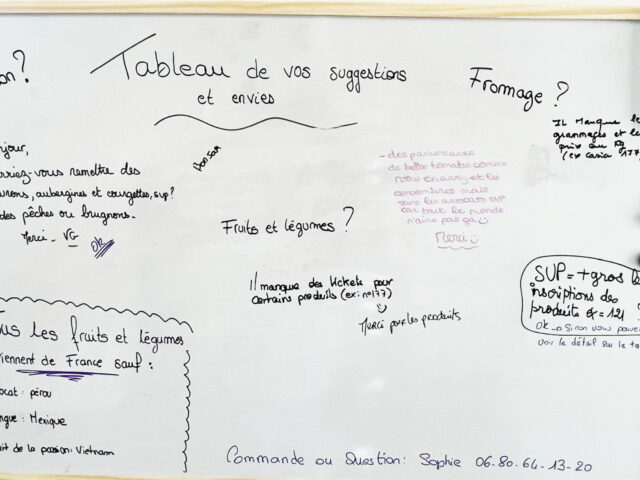 on?
Tableau de vos suggestions
et envies
Fromage ?
Il manque le
grammages et le
prix au kg
(ex casier 177
njour,
rriez-vous remettre des
rons, aubergines et courgettes, svp?
des pêches ou brugnons.
Merci - VG
OK
Bonsoir
- des paniers avec
de belles tomates comme
vous en avez et les
concombres mais
sans les avocats svp
car tout le monde
n'aime pas ça
Merci
Fruits et légumes ?
Il manque des tickets pour
certains produits (ex: n°177)
Merci pour les produits
SVP = + gros le
inscriptions des
produits ex = 121 ?
ok → Sinon vous pouve
voir le détail sur le ta
ous les fruits et légumes
viennent de France sauf :
ocat : pérou
ngue : Mexique
uit de la passion : Vietnam
Commande ou Question : Sophie 06.80.64-13-20